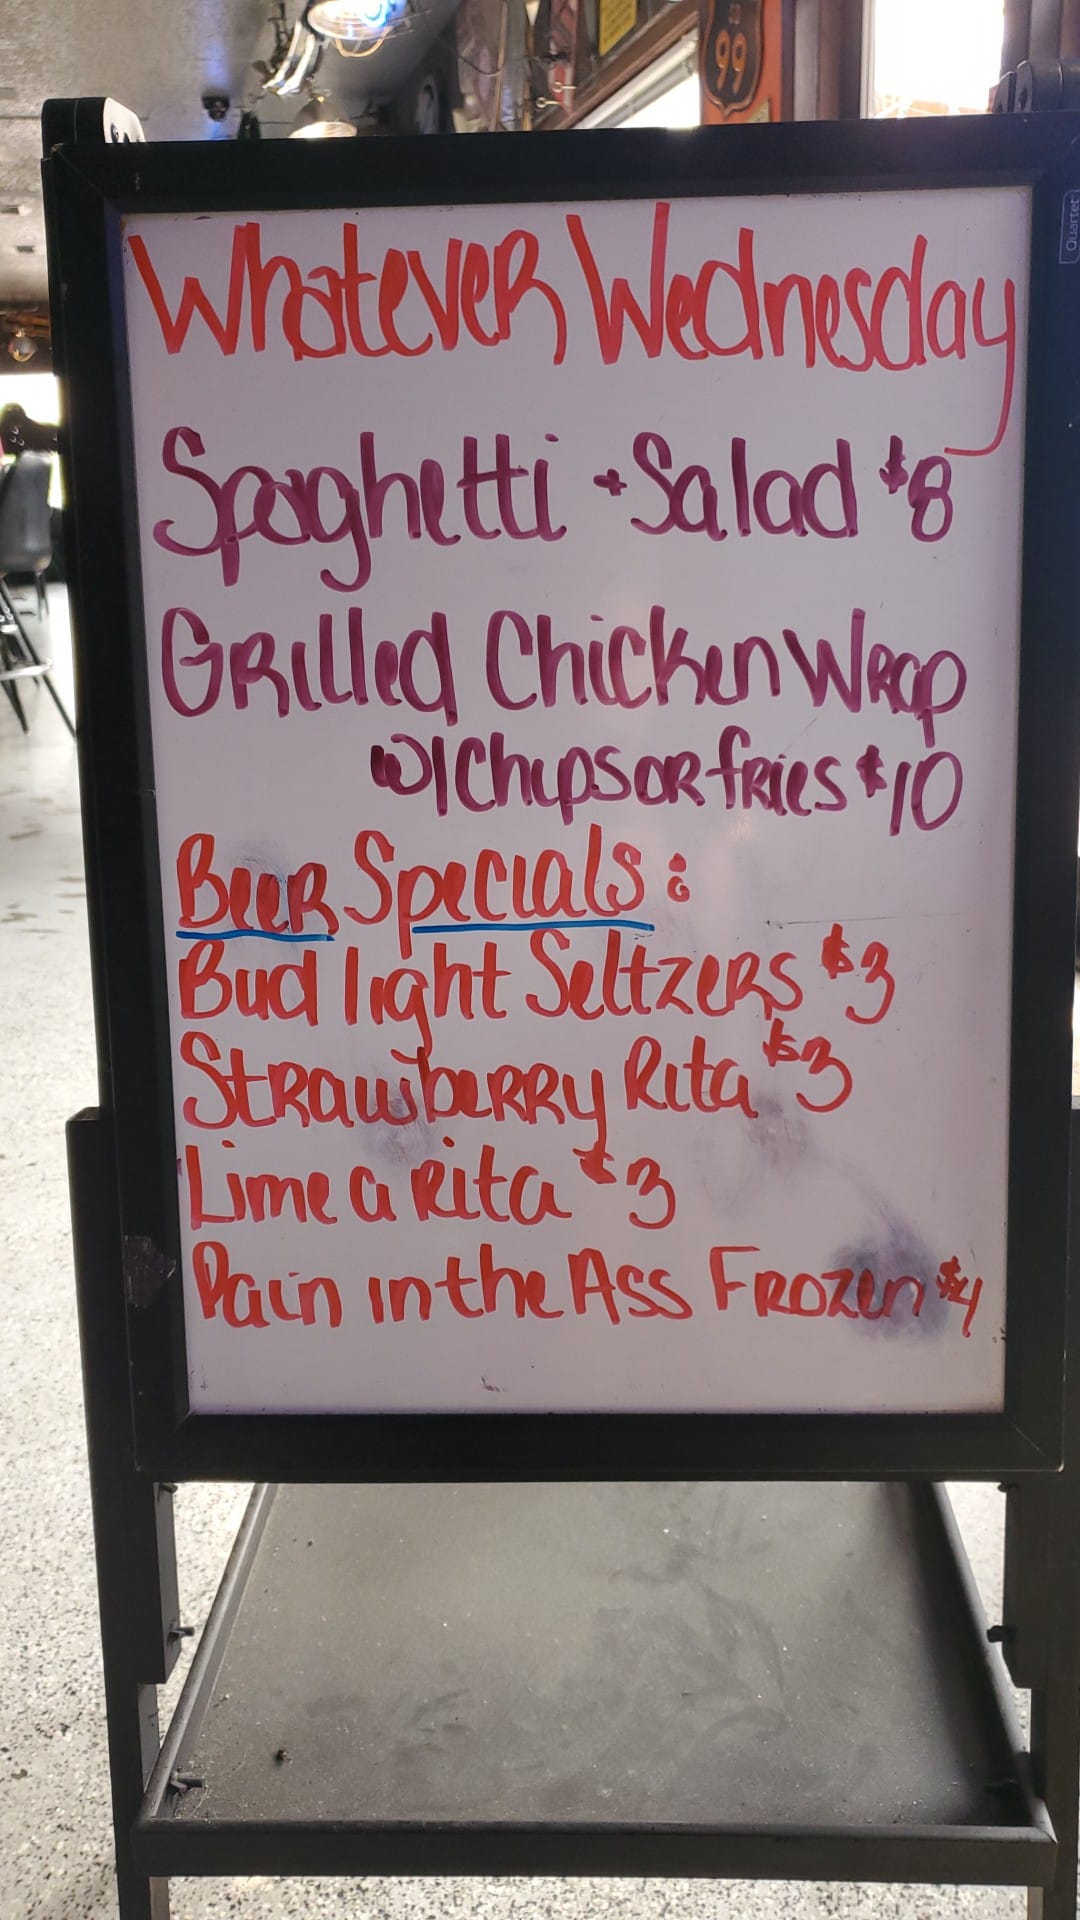 99
Quartet
Whatever Wednesday
Spaghetti + Salad $8
Grilled Chicken Wrap
w/Chips or fries $10
Beer Specials:
Bud light Seltzers $3
Strawberry Rita $3
Lime a Rita $3
Pain in the Ass Frozen $4